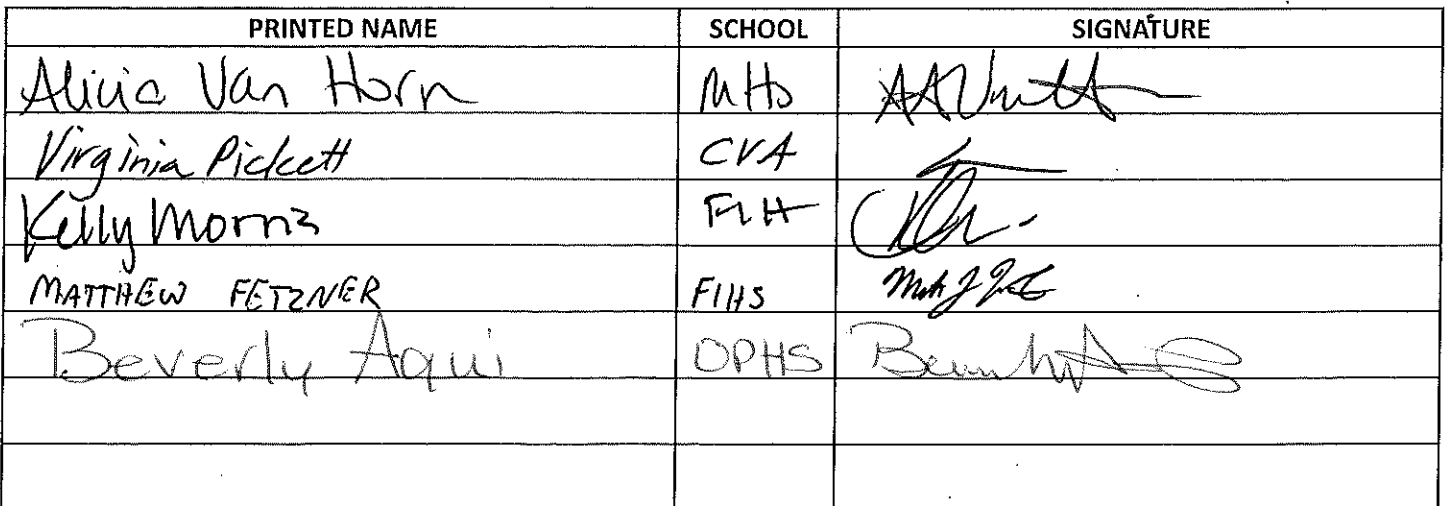 PRINTED NAME SCHOOL SIGNATURE
Alicia Van Horn MHS
Virginia Pickett CVA
Kelly Morris
MATTHEW FETZNER FIHS
Beverly Aqui OPHS